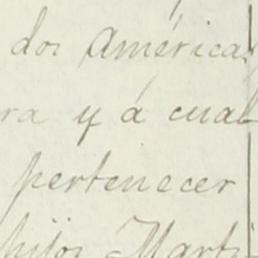 dos Américas
ra y á cual
pertenecer
hijos Marti